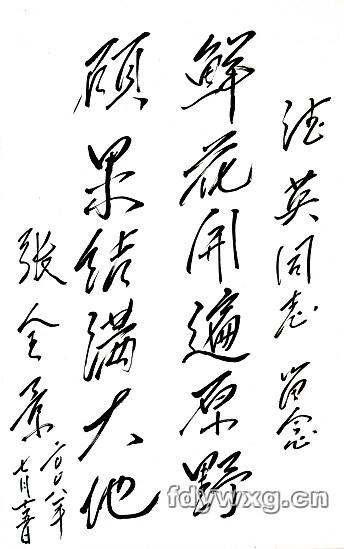 德英同志 留念
鲜花开遍原野
硕果结满大地
张全景
二〇〇八年
七月
fdywxg.cn